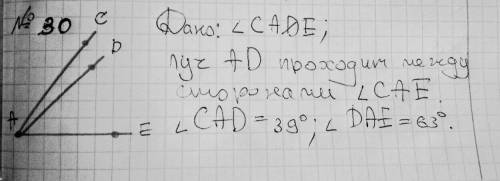 № 30
C
D
A
E
Дано: ∠CADE;
луч AD проходит между
сторонами ∠CAE.
∠CAD = 39°; ∠DAE = 63°.